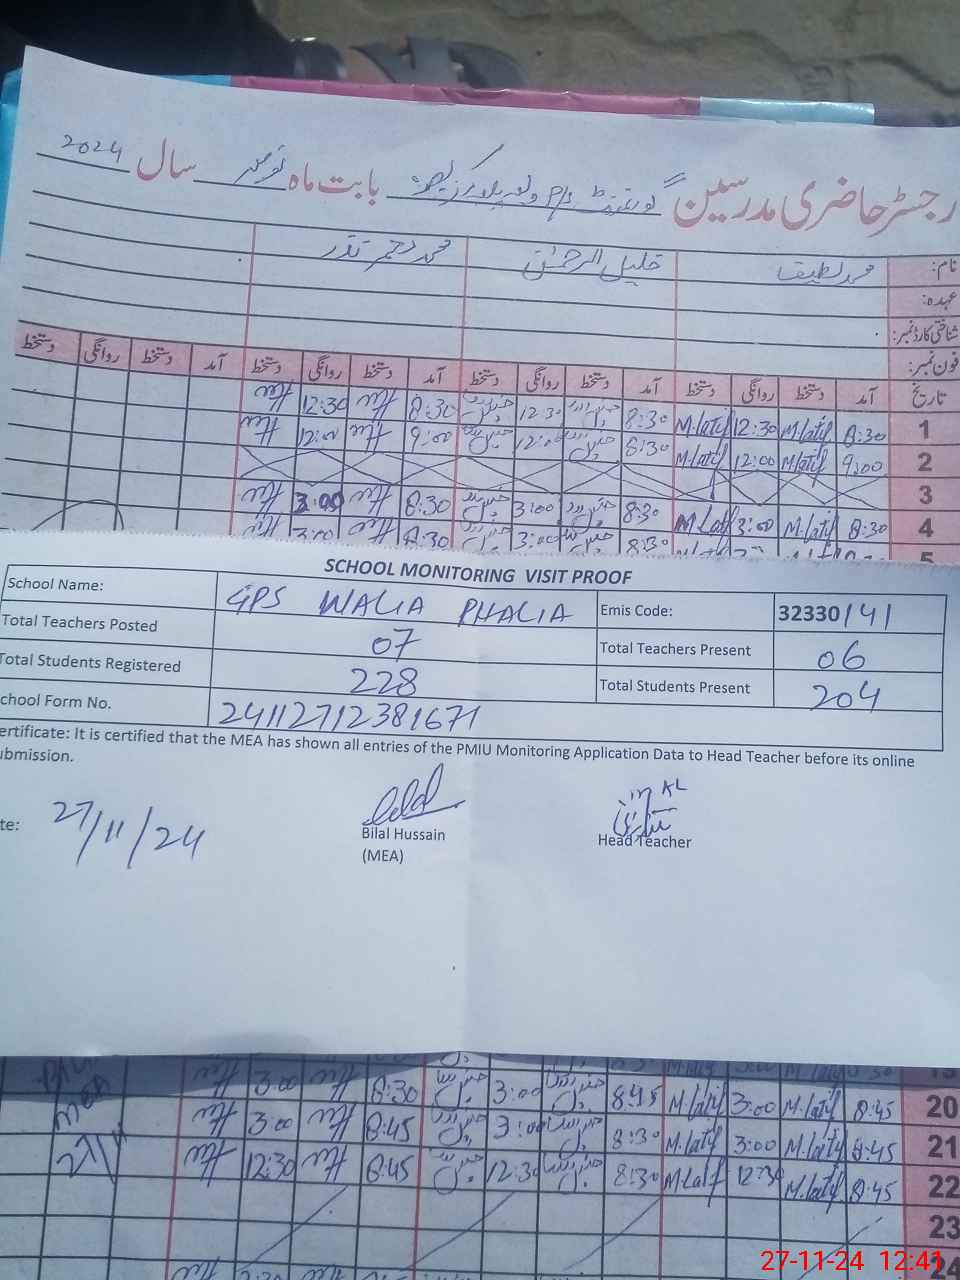 رجسٹر حاضری مدرسین گورنمنٹ بابت ماہ نومبر سال 2024
نام: محمد لطیف خلیل الرحمٰن
عہدہ:
شناختی کارڈ نمبر:
فون نمبر:
تاریخ آمد دستخط روانگی دستخط آمد دستخط روانگی دستخط آمد دستخط روانگی دستخط آمد دستخط روانگی دستخط
1 8:30 M.latif 12:30 M.latif 8:30 12:30 8:30 12:30
2 9:00 M.latif 12:00 M.latif 8:30 12:00 9:00 12:00
3
4 8:30 M.latif 3:00 M.latif 8:30 3:00 8:30 3:00
5 8:30 3:00 8:30 3:00
SCHOOL MONITORING VISIT PROOF
School Name: GPS WALIA PHALIA Emis Code: 32330/141
Total Teachers Posted 07 Total Teachers Present 06
Total Students Registered 228 Total Students Present 204
chool Form No. 24112712381671
ertificate: It is certified that the MEA has shown all entries of the PMIU Monitoring Application Data to Head Teacher before its online
ubmission.
te: 27/11/24
Bilal Hussain
(MEA)
Head Teacher
20 8:45 M.latif 3:00 M.latif 8:45 3:00 8:30 3:00
21 8:45 M.latif 3:00 M.latif 8:30 3:00 8:45 3:00
22 8:45 M.latif 12:30 M.latif 8:30 12:30 8:45 12:30
MEA
27/11
23
24
27-11-24 12:41